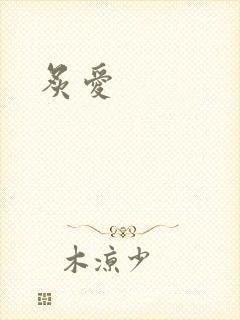 炙愛
木凉少